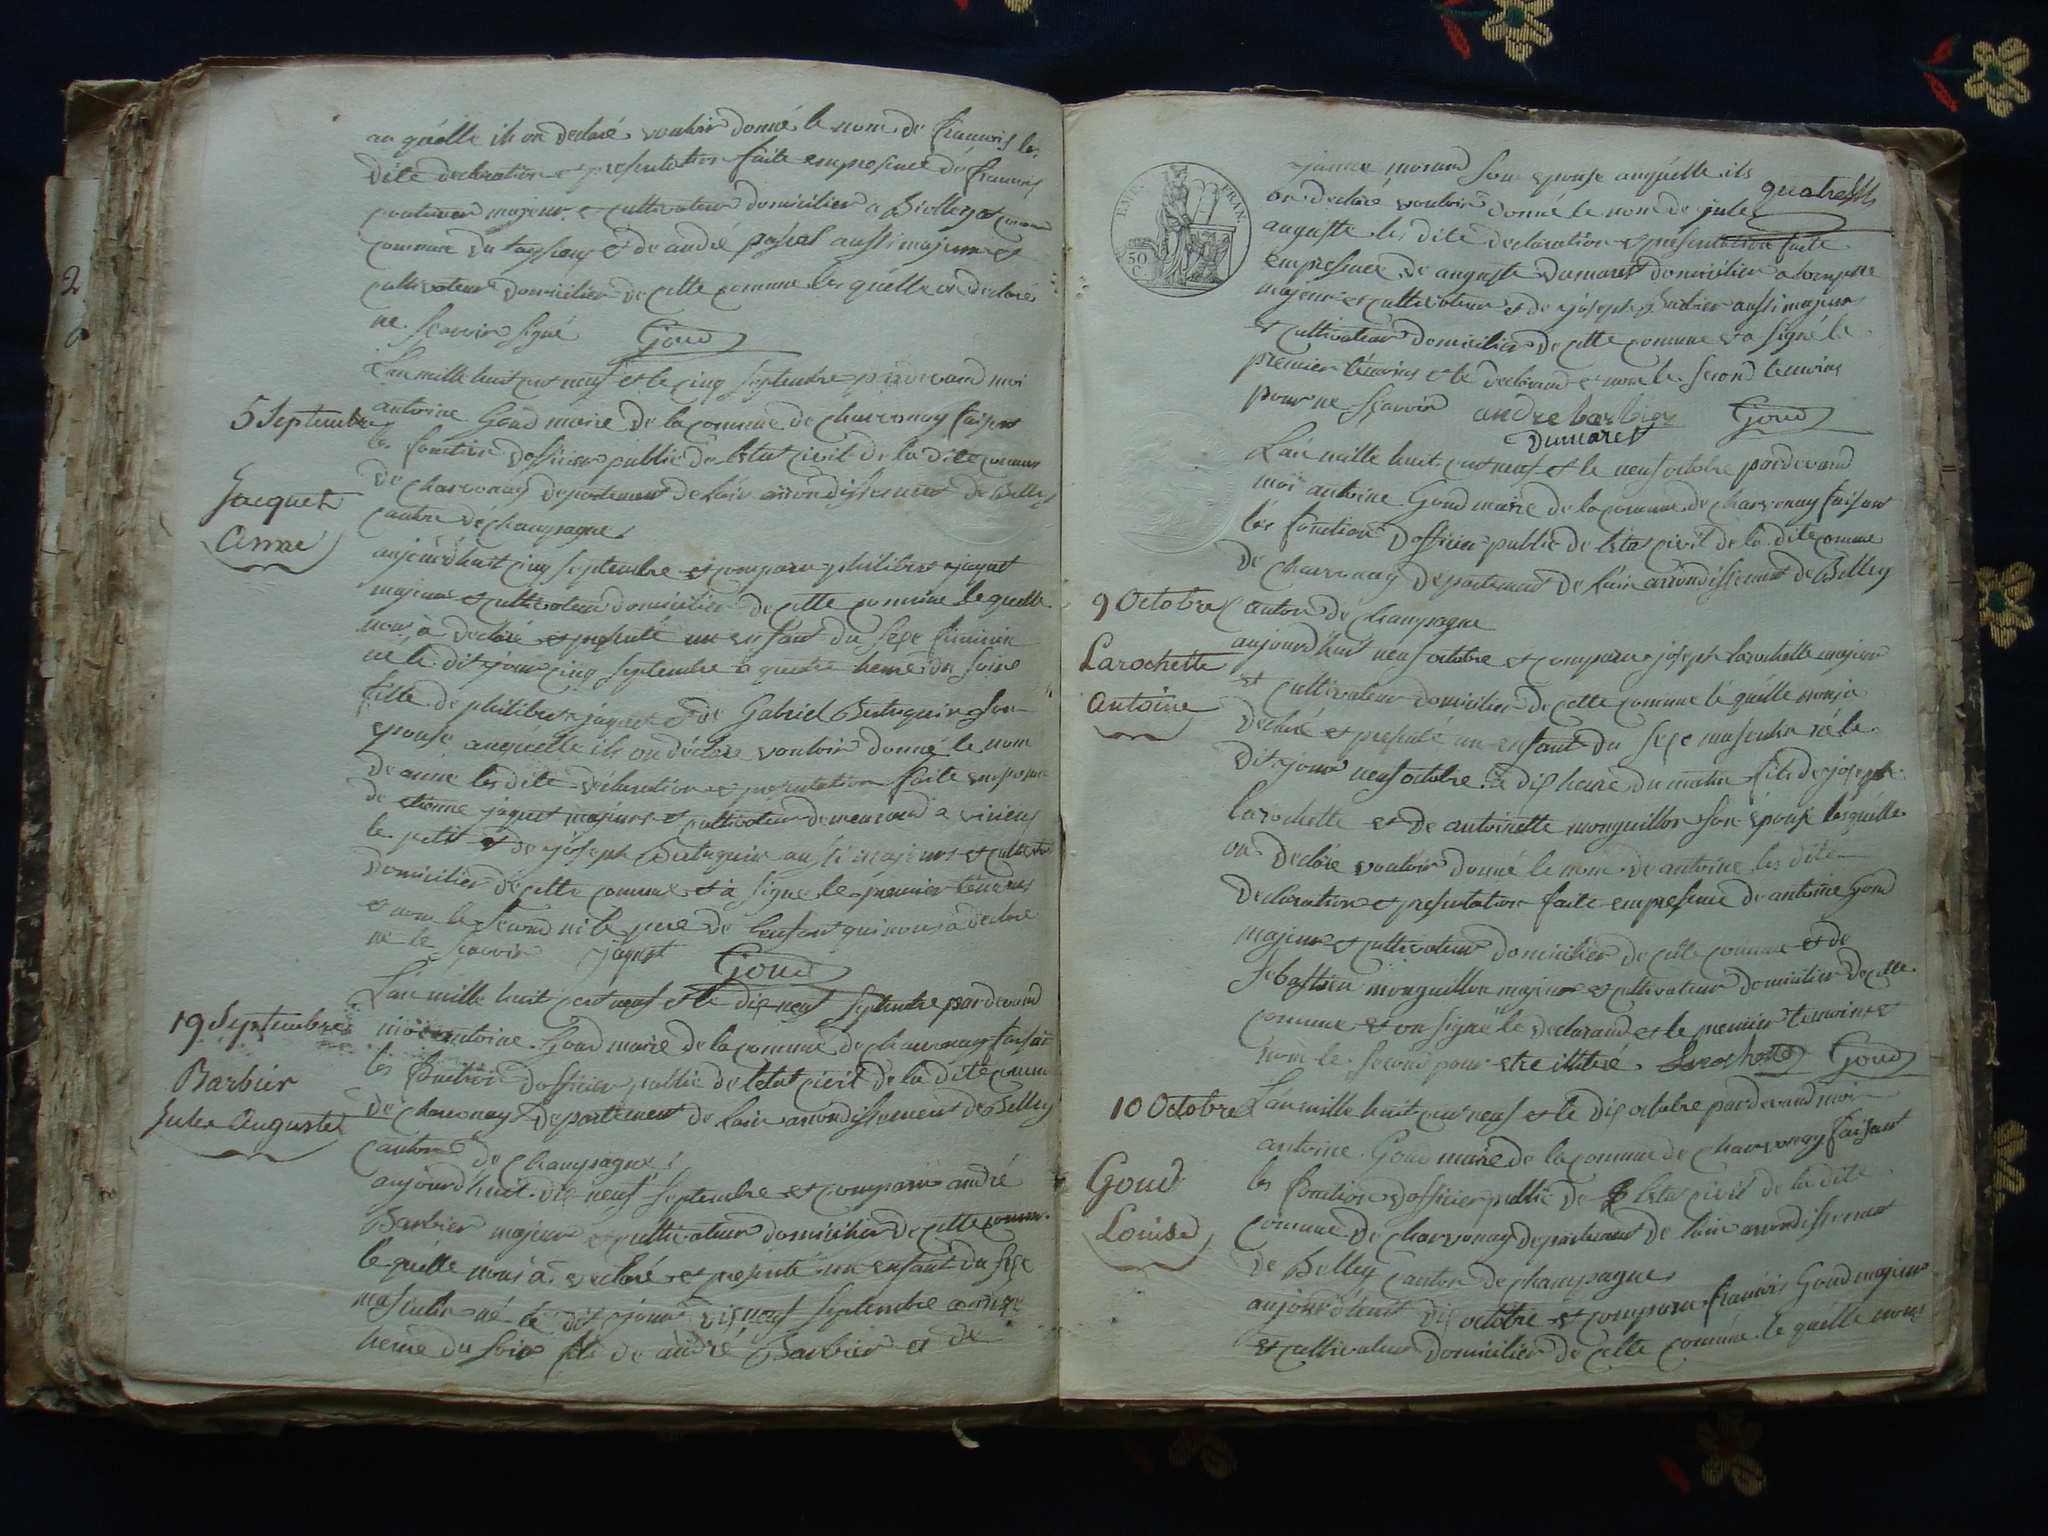 au quélle ils on declaré vouloir donné le nom de francois les
dite declaration et presentation faite empresence de francois
majeur et cultivateur domicilier a
commune du et de andré aussi majeur et
cultivateur domicilier de cette comune les quélle on declaré
ne scavoir signé Goud
L'an mille huit cent neuf et le cinq septembre pardevand moi
5 Septembre
antoine Goud maire de la commune de charvonay faisant
les fonction dofficier public de létat civil de la dite comune
Jacquet
de charvonay departement de lain arrondissement de Belley
canton de champagne
Anne
aujourdhuit cinq septembre et comparu philibert jaquet
majeur et cultivateur domicilier de cette commune le quélle
nous à declaré et presenté un enfant du sexe féminin
né le dit jour cinq septembre a quatre heure du soire
fille de philibert jaquet et de Gabriel son
epouse auquélle ils on déclaré vouloir donné le nom
de anne les dite déclaration et presentation faite
de etienne jaquet majeurs et cultivateur demeurand a virieu
le petit et de joseph aussi majeurs et
domicilier de cette comune et à signé le premier témoins
et nom le second ni le pere de lenfant qui nous a declaré
ne le scavoir jaquet Goud
L'an mille huit cent neuf et le dix neuf septembre pardevand
19 Septembre
moi antoine Goud maire de la commune de charvonay faisant
Barbier
les fonction dofficier public de létat civil de la dite comune
Jules Auguste
de charvonay departement de lain arrondissement de Belley
canton de champagne
aujourdhuit dix neuf septembre et comparu andré
Barbier majeur et cultivateur domicilier de cette comune
le quélle nous à declaré et presenté un enfant du sexe
masculin né le dit jour dix neuf septembre
heure du soir fils de andré Barbier et de
EMP. FRAN.
50 C.
morand son epouse auquélle ils
on declaré vouloir donné le nom de jule
auguste les dite declaration et presentation faite
empresence de auguste dumarest domicilier a
majeur et cultivateur et de joseph Barbier aussi majeur
et cultivateur domicilier de cette comune et a signé le
premier témoins et le declarand et nom le second temoins
pour ne scavoir andre barbier Goud
Dumarest
L'an mille huit cent neuf et le neuf octobre pardevand
moi antoine Goud maire de la comune de charvonay faisant
les fonction dofficier public de létat civil de la dite comune
de charvonay departement de lain arrondissement de Belley
9 Octobre
canton de champagne
Larochette
aujourdhuit neuf octobre et comparu joseph larochette majeur
Antoine
et cultivateur domicilier de cette comune le quélle nous a
declaré et presenté un enfant du sexe masculin né le
dit jour neuf octobre à dix heure du matin fils de joseph
larochette et de antoinette monguillon son epouse lesquélle
on declaré vouloir donné le nom de antoine les dite
declaration et presentation faite empresence de antoine Goud
majeur et cultivateur domicilier de cette comune et de
sebastien monguillon majeur et cultivateur domicilier de cette
comune et on signé le declarand et le premier temoins et
nom le second pour etre illitéré. Larochette Goud
10 Octobre
L'an mille huit cent neuf et le dix octobre pardevand moi
antoine Goud maire de la comune de charvonay faisant
Goud
les fonction dofficier public de létat civil de la dite
Louise
comune de charvonay departement de lain arrondissement
de Belley canton de champagne
aujourdhuit dix octobre et comparu francois Goud majeur
et cultivateur domicilier de cette comune le quélle nous